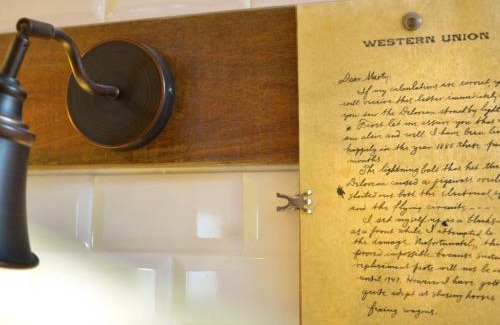 WESTERN UNION
Dear Marty,
If my calculations are correct y
will receive this letter immediately
you saw the Delorean struck by light
First let me assure you that
am alive and well. I have been
happily in the year 1885 these pas
months.
The lightning bolt that hit the
Delorean caused a gigawatt overl
shorted out both the
and the flying circuits
I set myself up as a blacks
as a front while I attempted to
the damage. Unfortunately, this
proved impossible because suita
replacement parts will not be
until 1947. However, I have gott
quite adept at shoeing horses
fixing wagons.